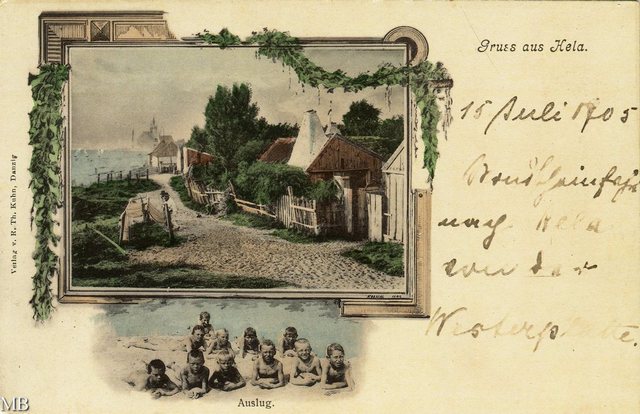 Gruss aus Hela.
15 Juli 1905
nach Hela
von der
Westerplatte.
Verlag v. R. Th. Kuhn, Danzig
Auslug.
MB